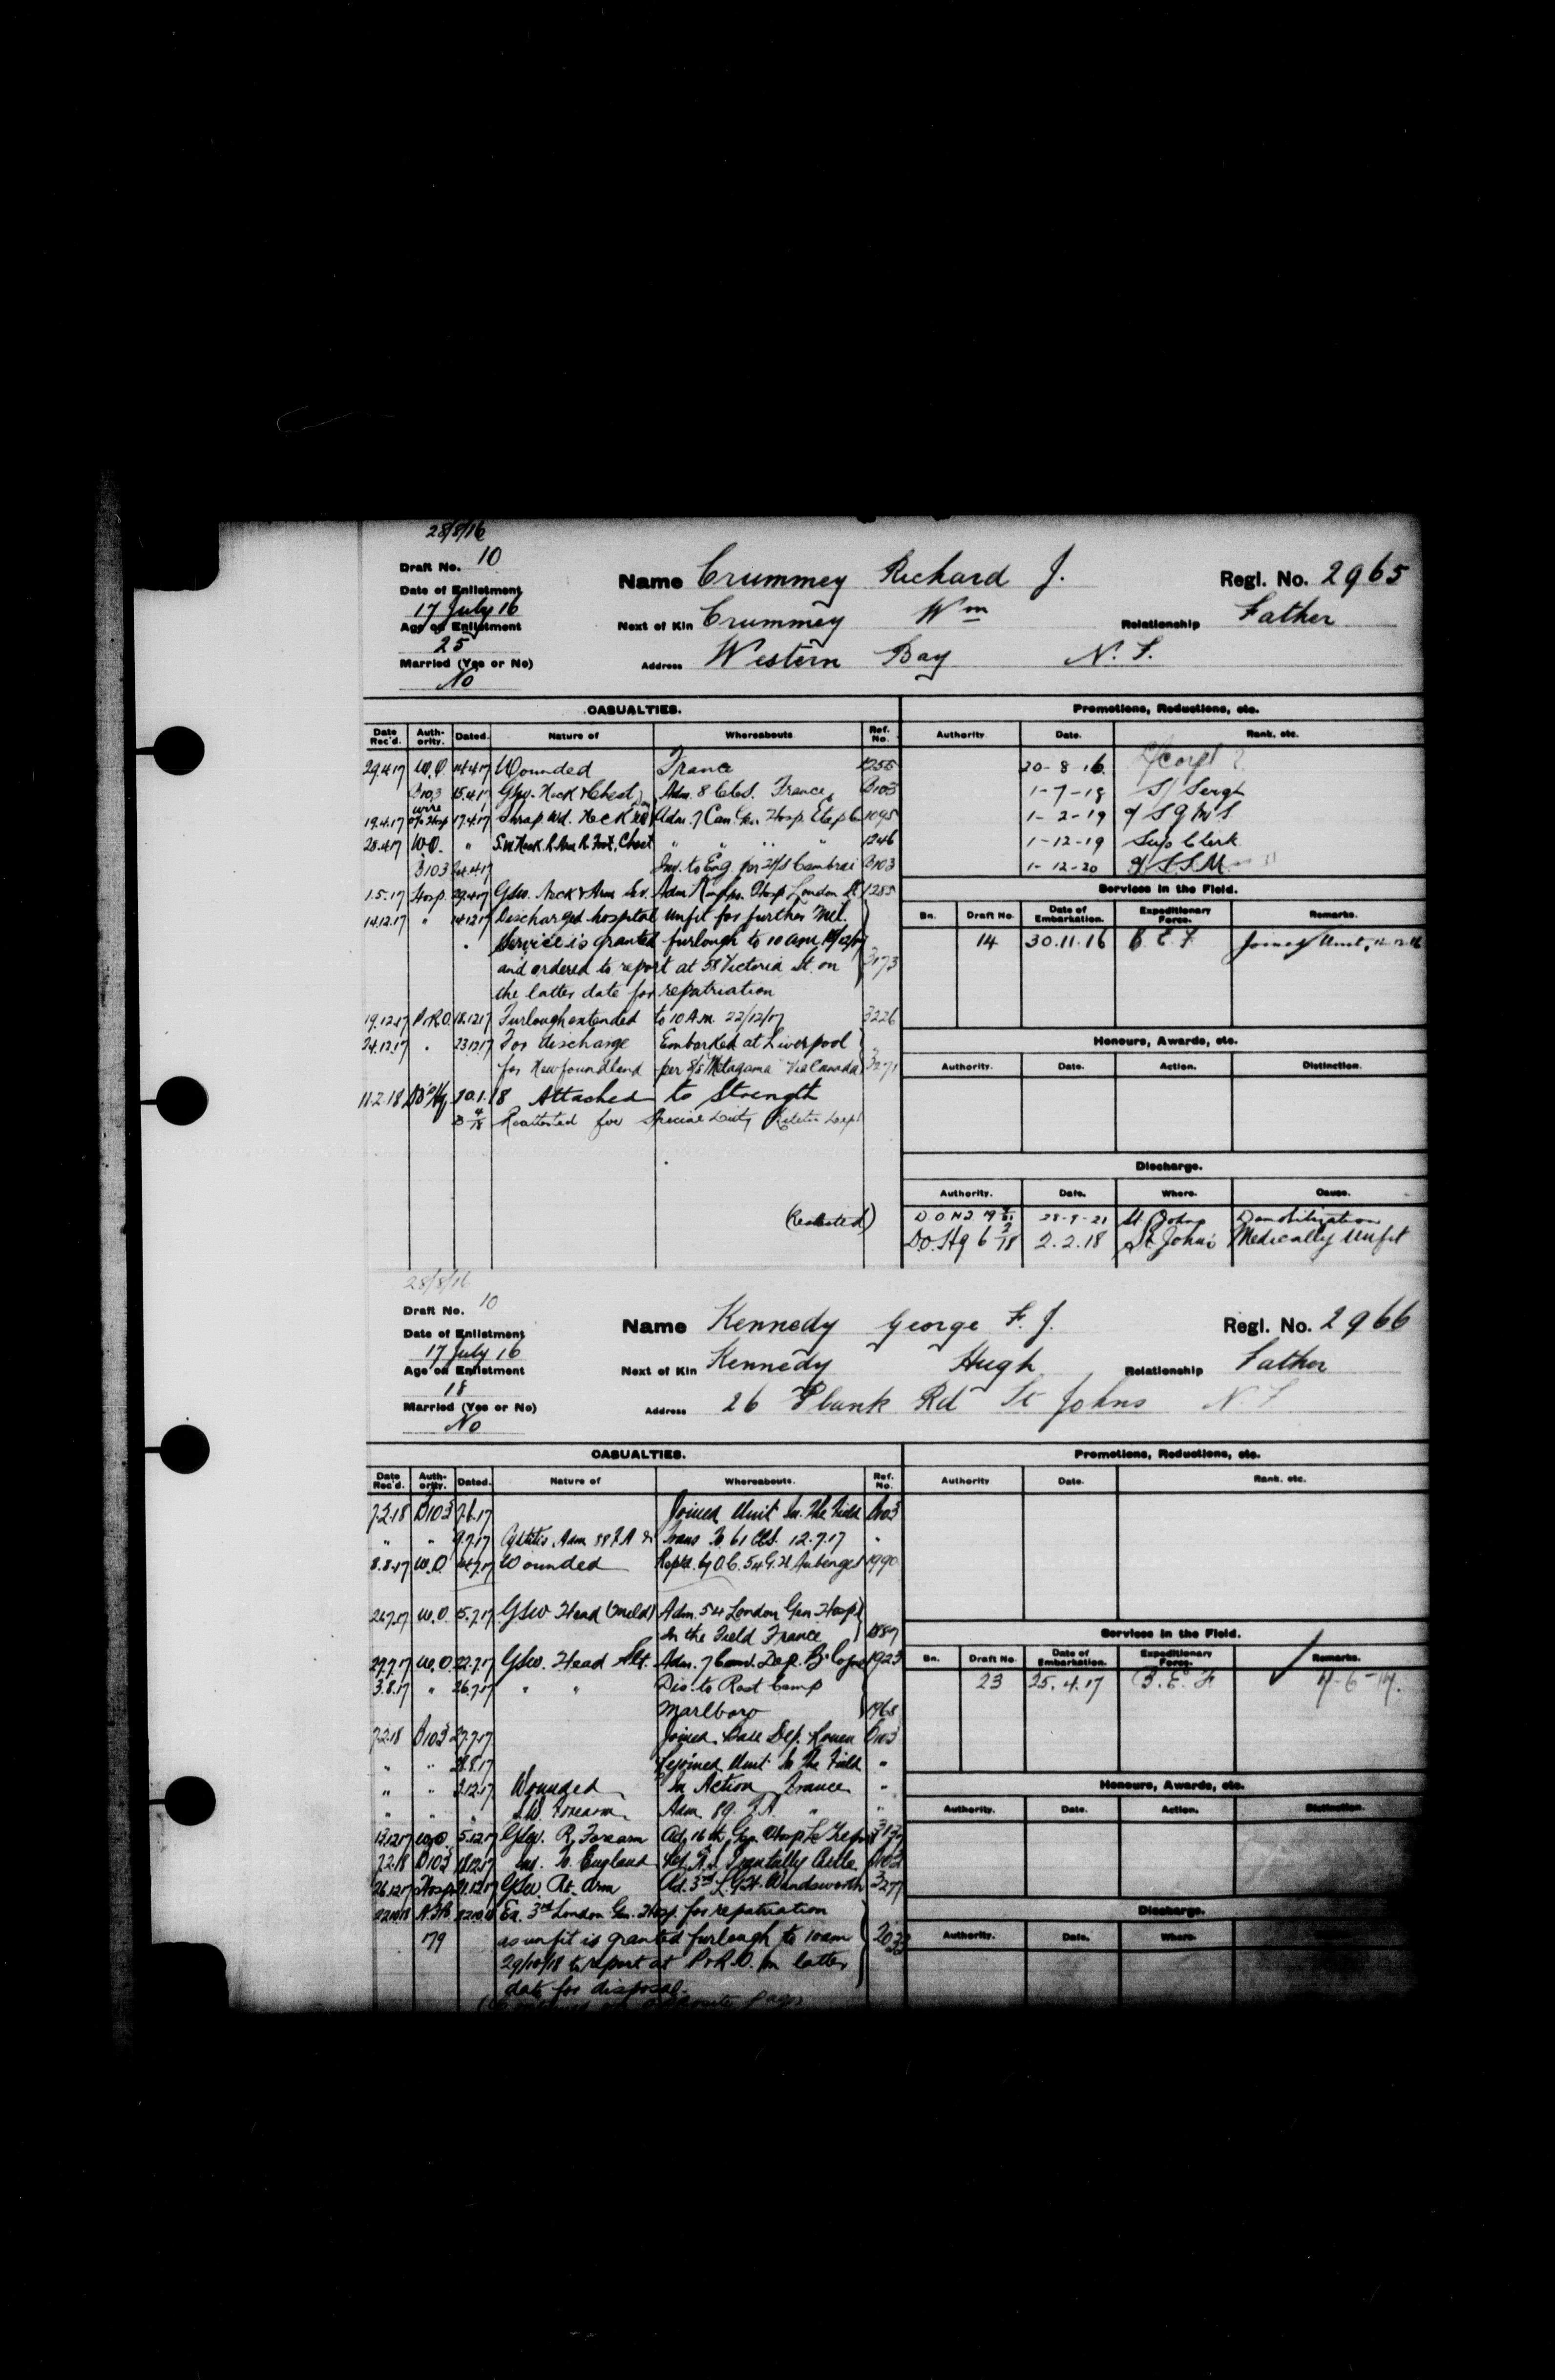 28/8/16
Draft No. 10
Name Crummey Richard J.
Regl. No. 2965
Date of Enlistment
17 July 16
Next of Kin Crummey Wm
Relationship Father
Age on Enlistment
25
Address Western Bay N. F.
Married (Yes or No)
No
CASUALTIES.
Promotions, Reductions, etc.
Date Rec'd. Auth-ority. Dated. Nature of Whereabouts Ref. No.
Authority Date. Rank, etc.
29.4.17 W.O. 14.4.17 Wounded France 1255
B103 15.4.17 Gsw. Neck & Chest Adm. 8 C.C.S. France B103
19.4.17 wire o/c Hosp 17.4.17 Shrap. wd. Neck Adm. 7 Can. Gen. Hosp. 1095
28.4.17 W.O. " S.W. Neck R. Arm R. Foot, Chest " " " " 1246
B103 24.4.17 Inv. to Eng. per H/S Cambrai B103
1.5.17 Hosp. 29.4.17 Gsw. Neck & Arm Adm. Hosp. London 1285
14.12.17 " 14.12.17 Discharged hospital unfit for further Mil.
Service is granted furlough to 10 am
and ordered to report at 58 Victoria St. on 3173
the latter date for repatriation
19.12.17 P.&R.O. 18.12.17 Furlough extended to 10 A.M. 22/12/17 3226
24.12.17 " 23.12.17 For discharge Embarked at Liverpool
for Newfoundland per S/S Metagama via Canada 3271
11.2.18 10.1.18 Attached to Strength
3 4/18 Reattested for Special Duty
20-8-16 L/Corpl
1-7-18 S/Sergt
1-2-19 S Q M S
1-12-19 Sup Clerk
1-12-20 S.S.M.
Services in the Field.
Bn. Draft No Date of Embarkation. Expeditionary Force. Remarks.
14 30.11.16 B. E. F. Joined Unit, 12-12-16
Honours, Awards, etc.
Authority. Date. Action. Distinction.
Discharge.
Authority. Date. Where. Cause.
28-9-21 St. Johns Demobilization
D.O. Hq 6 2/18 2.2.18 St. John's Medically Unfit
28/8/16
Draft No. 10
Name Kennedy George F. J.
Regl. No. 2966
Date of Enlistment
17 July 16
Next of Kin Kennedy Hugh
Relationship Father
Age on Enlistment
18
Address 26 Plank Rd St Johns N. F
Married (Yes or No)
No
CASUALTIES.
Promotions, Reductions, etc.
Date Rec'd. Auth-ority. Dated. Nature of Whereabouts. Ref. No.
Authority Date. Rank, etc.
7.2.18 B103 7.6.17 Joined Unit In The Field B103
" " 9.7.17 Cystitis. Adm 88 F.A. & Trans To 61 CCS. 12.7.17 "
8.8.17 W.O. 14.7.17 Wounded Reptd. by O.C. 54 G.H. Aubengue 1990
26.7.17 W.O. 15.7.17 Gsw. Head (mild) Adm. 54 London Gen. Hosp.
In the Field France
27.7.17 W.O. 22.7.17 Gsw. Head Slt. Adm. 7 Conv. Dep. B'logne 1923
3.8.17 " 26.7.17 " " Dis. to Rest Camp
Marlboro 1968
7.2.18 B103 27.7.17 Joined Base Dep. Rouen B103
" " Rejoined Unit In The Field "
" " 2.12.17 Wounded In Action France "
" " " S.W. Forearm Adm. 89. F.A. " "
W.O. 5.12.17 Gsw. R. Forearm Ad. 16th Gen. Hosp. Le Treport
7.2.18 B103 18.12.17 Inv. To England B103
26.12.17 Hosp Gsw. Rt. Arm Ad. 3rd L.G.H. Wandsworth 3277
Ex. 3rd London Gen. Hosp. for repatriation
179 as unfit is granted furlough to 10 am
29/10/18 to report at P.&R.O. on latter
date for disposal.
Services in the Field.
Bn. Draft No Date of Embarkation. Expeditionary Force. Remarks.
23 25.4.17 B. E. F
Honours, Awards, etc.
Authority. Date. Action. Distinction.
Discharge.
Authority. Date. Where.